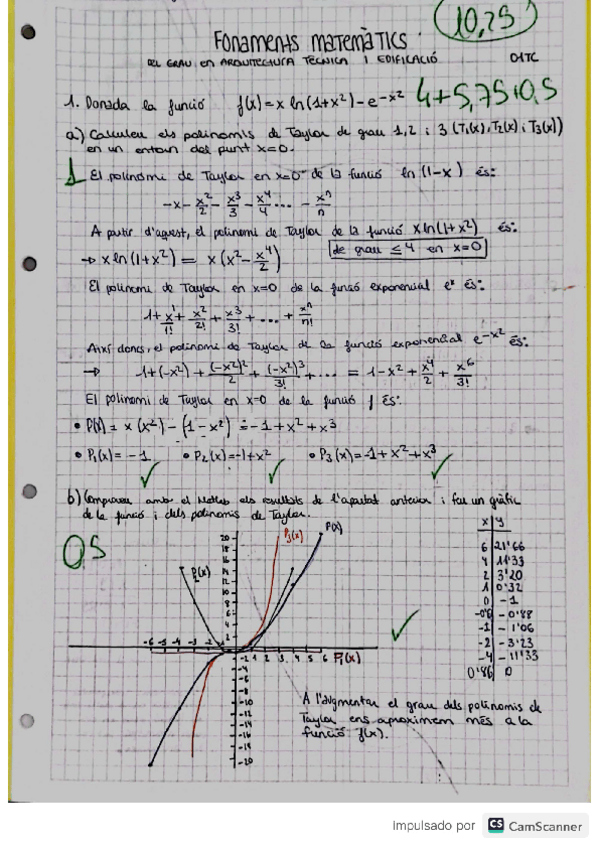 10,25
FONAMENTS MATEMÀTICS
DEL GRAU EN ARQUITECTURA TÈCNICA I EDIFICACIÓ
4+5,75+0,5
1. Donada la funció f(x) = x ln(1+x²) - e^-x²
a) Calculeu els polinomis de Taylor de grau 1, 2 i 3 (T₁(x), T₂(x) i T₃(x))
en un entorn del punt x=0.
1
El polinomi de Taylor en x=0 de la funció ln(1-x) és:
-x - x²/2 - x³/3 - x⁴/4 ... - xⁿ/n
A partir d'aquest, el polinomi de Taylor de la funció x ln(1+x²) és:
→ x ln(1+x²) = x (x² - x⁴/2) de grau ≤ 4 en x=0
El polinomi de Taylor en x=0 de la funció exponencial eˣ és:
1 + x¹/1! + x²/2! + x³/3! + ... + xⁿ/n!
Així doncs, el polinomi de Taylor de la funció exponencial e^-x² és:
→ 1 + (-x²) + (-x²)²/2 + (-x²)³/3! + ... = 1 - x² + x⁴/2 + x⁶/3!
El polinomi de Taylor en x=0 de la funció f és:
• P(x) = x (x²) - (1 - x²) = -1 + x² + x³
• P₁(x) = -1 • P₂(x) = -1+x² • P₃(x) = -1 + x² + x³
b) Comproveu amb el els resultats de l'apartat anterior i feu un gràfic
de la funció i dels polinomis de Taylor.
0,5
P₃(x) P(x)
P₂(x)
P₁(x)
20
18
16
14
12
10
8
6
4
2
-6 -5 -4 -3 -2
1 2 3 4 5 6
-2
-4
-6
-8
-10
-12
-14
-16
-18
-20
x y
6 21'66
4 11'33
2 3'20
1 0'32
0 -1
-0'88
-1 -1'06
-2 -3'23
-4 -11'33
0'86 0
A l'augmentar el grau dels polinomis de
Taylor ens aproximem més a la
funció f(x).
Impulsado por CS CamScanner